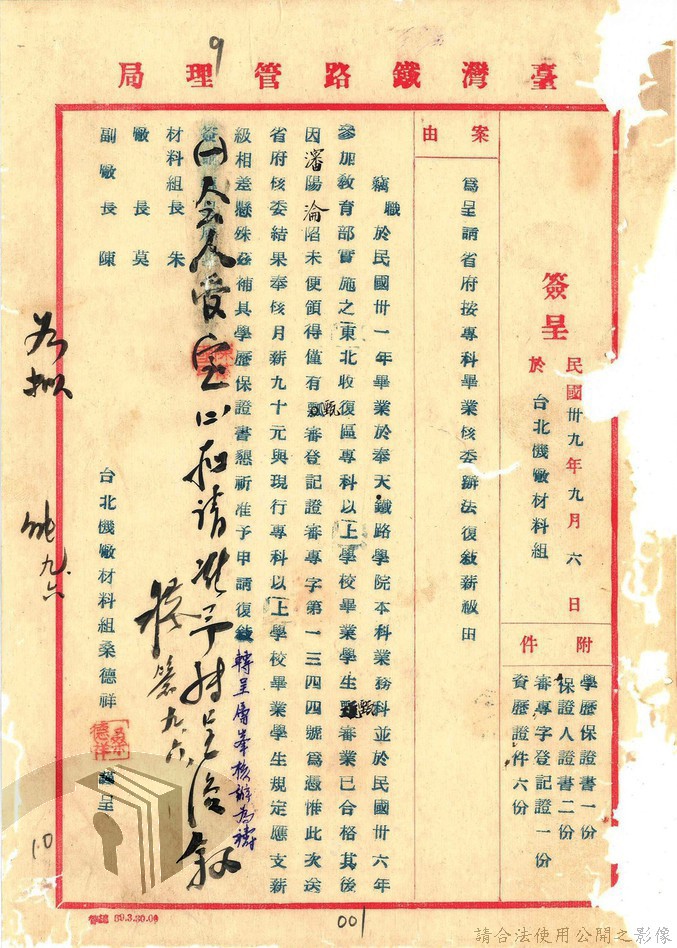 9
臺灣鐵路管理局
簽呈
民國卅九年九月六日
於台北機廠材料組
附件
學歷保證書一份
保證人證書二份
審專字登記證一份
資歷證件六份
案由
為呈請省府按專科畢業核委辦法復敘薪級由
竊職於民國卅一年畢業於奉天鐵路學院本科業務科並於民國卅六年
參加教育部實施之東北收復區專科以上學校畢業學生甄審業已合格其後
因瀋陽淪陷未便領得僅有甄審登記證審專字第一三四四號為憑惟此次送
省府核委結果奉核月薪九十元與現行專科以上學校畢業學生規定應支薪
級相差懸殊茲補具學歷保證書懇祈准予申請復敘轉呈層峯核辦為禱
材料組長 朱
廠長 莫
副廠長 陳
台北機廠材料組桑德祥 謹呈
桑德祥
九.六
九.六
10
39.3.30.00
001
請合法使用公開之影像